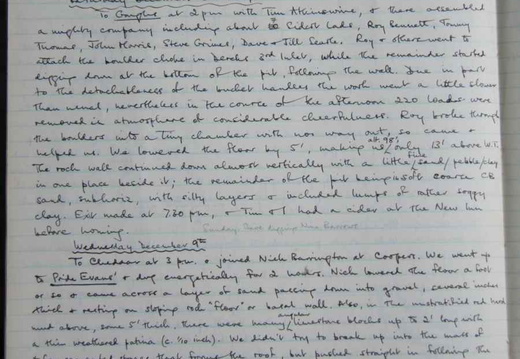 To Ganglies at 2 pm with Tim Atkinswine, & there assembled
a mighty company including about Cidest Lads, Roy Bennett, Tommy
Thomas, John Morris, Steve Grimes, Dave & Jill Searle. Roy & others went to
attack the boulder choke in 3rd Inlet, while the remainder started
digging down at the bottom of the pit, following the wall. Due in part
to the detachableness of the bucket handles the work went a little slower
than usual, nevertheless in the course of the afternoon 220 loads were
removed in atmosphere of considerable cheerfulness. Roy broke through
the boulders into a tiny chamber with no way out, so came &
helped us. We lowered the floor by 5', making us at 98' only 13' above W.I.
The rock wall continued down almost vertically with a little fine sand/pebble/clay
in one place beside it; the remainder of the pit being soft coarse CB
sand, with silty layers & included lumps of rather soggy
clay. Exit made at 7.30 pm, & Tim & I had a cider at the New Inn
before homing.
Wednesday December 9th
To Cheddar at 3 pm & joined Nick Barrington at Coopers. We went up
to Pride Evans' & dug energetically for 2 hours. Nick lowered the floor a foot
or so & came across a layer of sand passing down into gravel, several inches
thick & resting on sloping rock "floor" or basal wall. Also, in the unstratified red
mud above, some 5' thick, there were many angular limestone blocks up to 2' long with
a thin weathered patina (c. 1/10 inch). We didn't try to break up into the mass of
that formed the roof, but pushed straight in following the